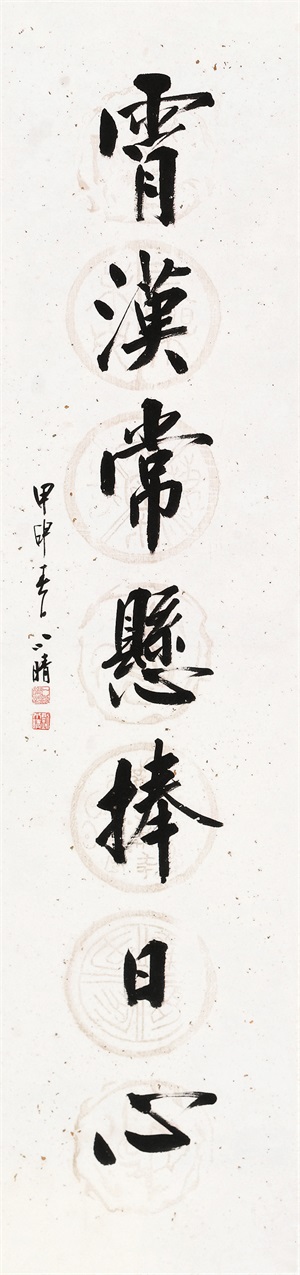 霄漢常懸捧日心
甲申春人晴